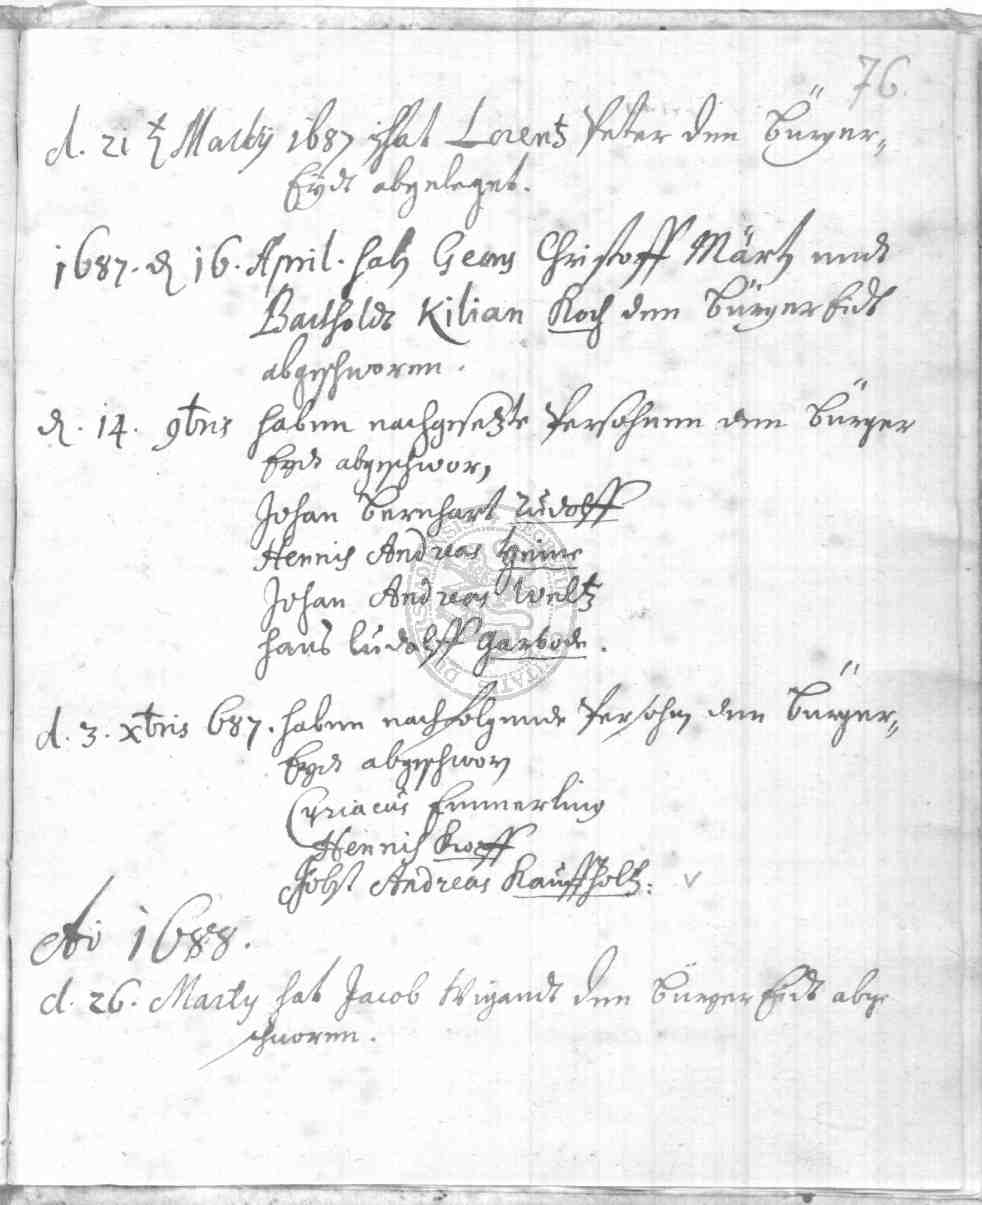 76.
d. 21 t Martij 1687 hat Lorentz Peter den Bürger„
Eydt abgeleget.
1687. d 16. April. hab Georg Christoff Märtz undt
Bartholdt Kilian Koch den Bürger Eidt
abgeschworen.
d. 14. 9bris haben nachgesetzte Persohnen den Bürger
Eydt abgeschwor,
Johan Bernhart Rudolff
Hennis Andreas Heine
Johan Andreas Weltz
Hans Ludolff Garbode.
d. 3. xbris 687. haben nachfolgende Persohn den Bürger„
Eydt abgeschwor
Cyriacus Emmerling
Hennis Kopff
Jobst Andreas Kauffholtz:
Ao 1688.
d. 26. Martij hat Jacob Wigandt den Bürger Eidt abge
schworen.